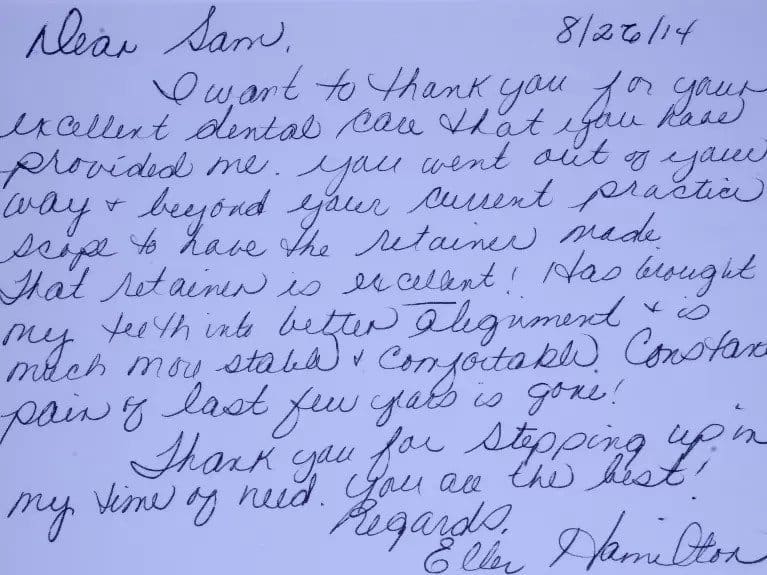 Dear Sam, 8/26/14
I want to thank you for your
excellent dental care that you have
provided me. You went out of your
way + beyond your current practice
scope to have the retainer made.
That retainer is excellent! Has brought
my teeth into better alignment + is
much more stable + comfortable. Constant
pain of last few years is gone!
Thank you for stepping up in
my time of need. You are the best!
Regards,
Ellen Hamilton